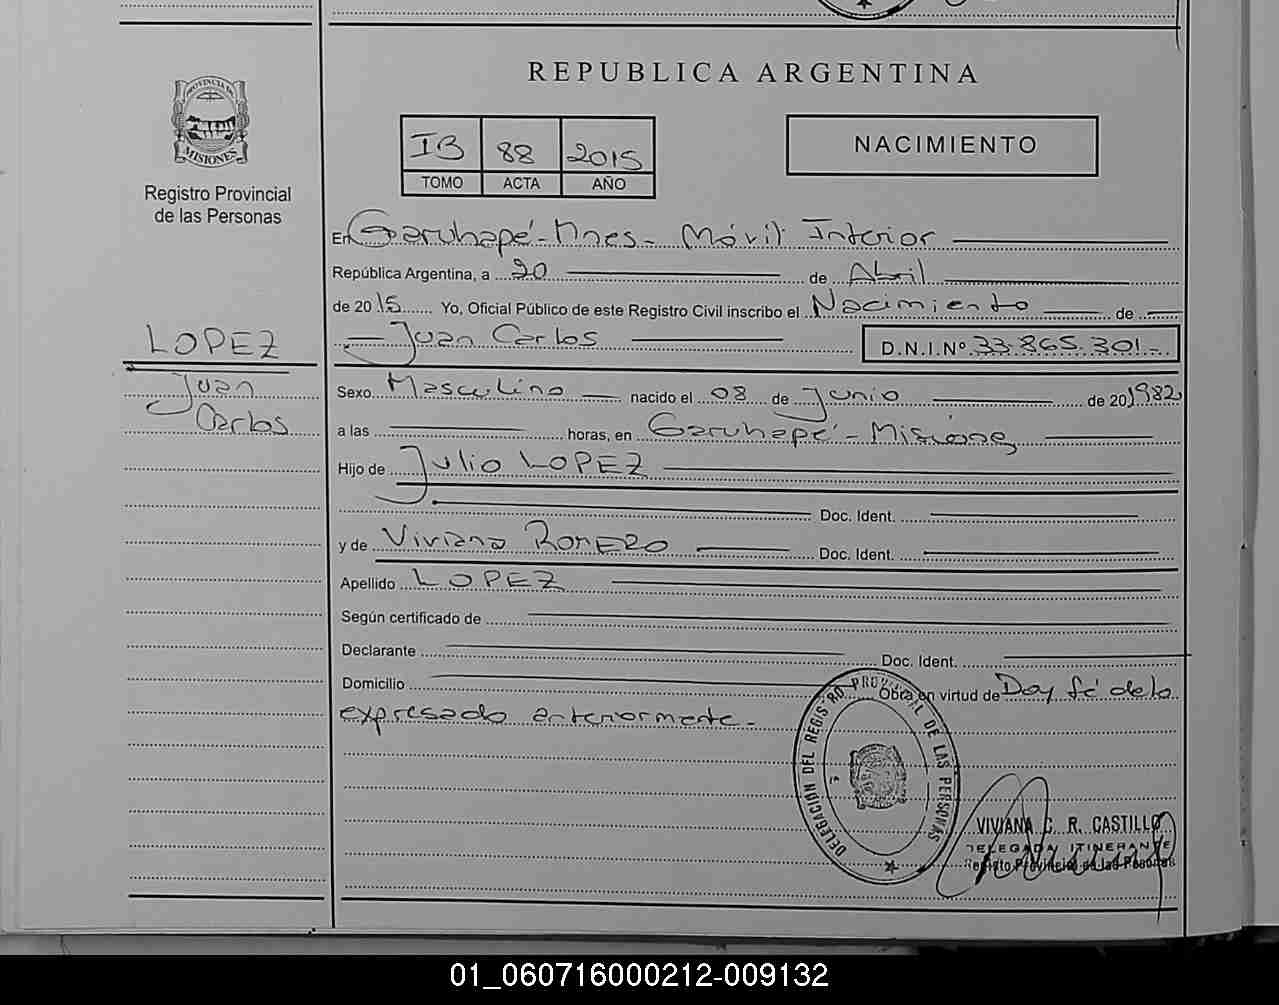 REPUBLICA ARGENTINA
PROVINCIA DE
MISIONES
Registro Provincial
de las Personas
IB 88 2015
TOMO ACTA AÑO
NACIMIENTO
En Garuhapé - Mnes - Móvil Interior
República Argentina, a 20 de Abril
de 2015 Yo, Oficial Público de este Registro Civil inscribo el Nacimiento de
Juan Carlos D.N.I.Nº 33.865.301.-
LOPEZ
Juan
Carlos
Sexo Masculino nacido el 08 de Junio de 201982
a las horas, en Garuhapé - Misiones
Hijo de Julio LOPEZ
Doc. Ident.
y de Viviana ROMERO Doc. Ident.
Apellido LOPEZ
Según certificado de
Declarante Doc. Ident.
Domicilio Obra en virtud de Doy fé de lo
expresado anteriormente.-
DELEGACION DEL REGISTRO PROVINCIAL DE LAS PERSONAS
VIVIANA C. R. CASTILLO
DELEGADA ITINERANTE
Registro Provincial de las Personas
01_060716000212-009132